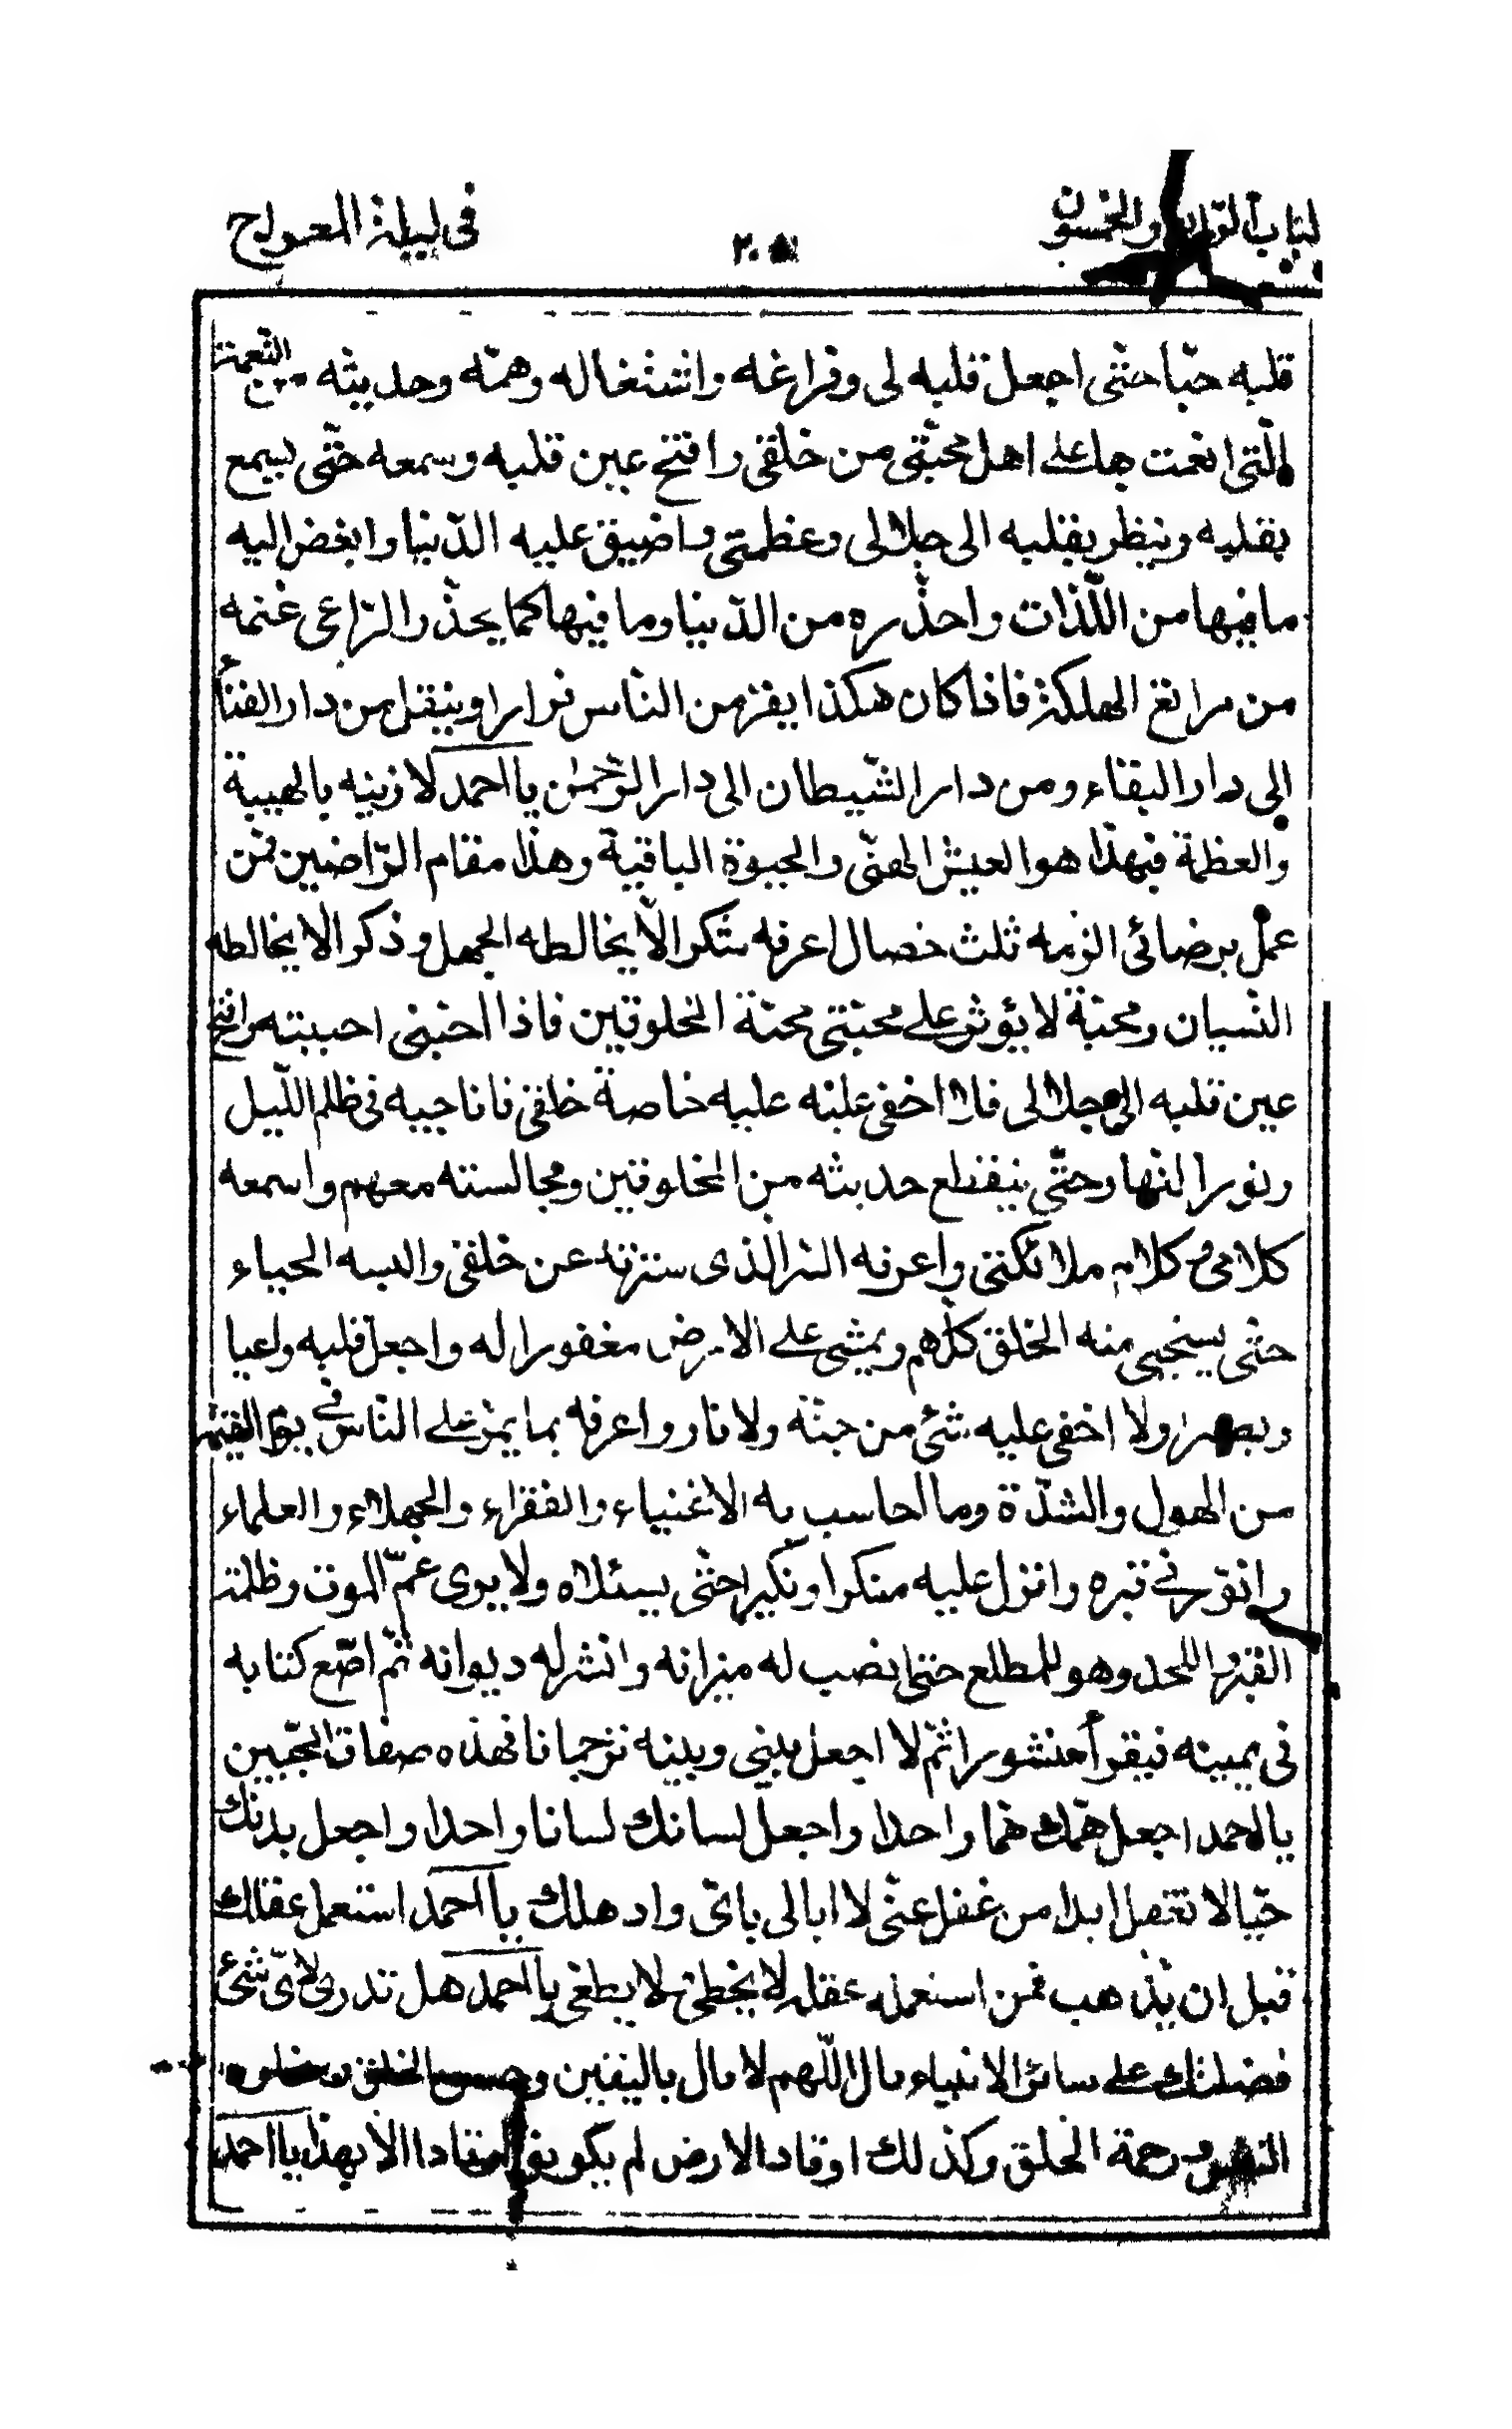 الباب الرابع والخمسون ٢٠٥ فى ليلة المعراج
قلبه حبّا حتّى اجعل قلبه لى وفراغه واشتغاله وهمّه وحديثه من النّعمة
الّتى انعمت بها على اهل محبّتى من خلقى وافتح عين قلبه وسمعه حتّى يسمع
بقلبه وينظر بقلبه الى جلالى وعظمتى واضيق عليه الدّنيا وابغض اليه
ما فيها من اللّذات واحذّره من الدّنيا وما فيها كما يحذّر الرّاعى غنمه
من مراتع الهلكة فاذا كان هكذا يفرّ من النّاس فرارا وينقل من دار الفناء
الى دار البقاء ومن دار الشّيطان الى دار الرّحمٰن يا احمد لازينه بالهيبة
والعظمة فهذا هو العيش الهنّى والحيوة الباقية وهذا مقام الرّاضين فمن
عمل برضائى الزمه ثلث خصال اعرفه شكرا لا يخالطه الجهل وذكرا لا يخالطه
النّسيان ومحبّة لا يؤثر على محبّتى محبّة المخلوقين فاذا احبّنى احببته وافتح
عين قلبه الى جلالى فلا اخفى عليه خاصة خلقى فاناجيه فى ظلم اللّيل
ونور النّهار حتّى ينقطع حديثه من المخلوقين ومجالسته معهم واسمعه
كلامى وكلام ملائكتى واعرفه السّر الذى سترته عن خلقى والبسه الحياء
حتّى يستحيى منه الخلق كلّهم ويمشى على الارض مغفورا له واجعل قلبه واعيا
وبصيرا ولا اخفى عليه شئ من جنّة ولا نار واعرفه بما يمرّ على النّاس فى يوم القيٰمة
من الهول والشدّة وما احاسب به الاغنياء والفقراء والجهلاء والعلماء
وانوّر فى قبره وانزل عليه منكرا ونكيرا حتّى يسئلاه ولا يرى غمّ الموت وظلمة
القبر واللحد وهو المطلع حتّى انصب له ميزانه وانشر له ديوانه ثمّ اضع كتابه
فى يمينه فيقرأ منشورا ثمّ لا اجعل بينى وبينه ترجمانا فهذه صفات المحبّين
يا احمد اجعل همّك همّا واحدا واجعل لسانك لسانا واحدا واجعل بدنك
حيّا لا تغفل ابدا من غفل عنّى لا ابالى باىّ واد هلك يا احمد استعمل عقلك
قبل ان يذهب فمن استعمل عقله لا يخطى ولا يطغى يا احمد هل تدرى لاىّ شئ
فضلتك على سائر الانبياء قال اللّهم لا قال باليقين وحسن الخلق وسخاوة
النفس ورحمة الخلق وكذلك اوتاد الارض لم يكونوا اوتادا الّا بهذا يا احمد